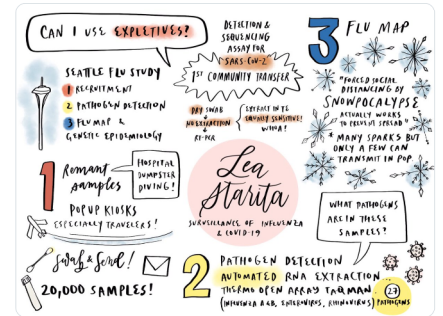 CAN I USE EXPLETIVES?
SEATTLE FLU STUDY
1 RECRUITMENT
2 PATHOGEN DETECTION
3 FLU MAP &
GENETIC EPIDEMIOLOGY
DETECTION &
SEQUENCING
ASSAY FOR
SARS-COV-2
1ST COMMUNITY TRANSFER
DRY SWAB
NO EXTRACTION
RT-PCR
EXTRACT IN TE
EQUALLY SENSITIVE!
WHOA!
3 FLU MAP
"FORCED SOCIAL
DISTANCING BY
SNOWPOCALYPSE
ACTUALLY WORKS
TO PREVENT SPREAD"
* MANY SPARKS BUT
ONLY A FEW CAN
TRANSMIT IN POP.
1 Remnant
samples
HOSPITAL
DUMPSTER
DIVING!
POPUP KIOSKS
ESPECIALLY TRAVELERS!
Swab & Send!
20,000 SAMPLES!
Lea
Starita
SURVEILLANCE OF INFLUENZA
& COVID-19
WHAT PATHOGENS
ARE IN THESE
SAMPLES?
2 PATHOGEN DETECTION
AUTOMATED RNA EXTRACTION
THERMO OPEN ARRAY TAQMAN
(INFLUENZA A & B, ENTEROVIRUS, RHINOVIRUS)
27
PATHOGENS